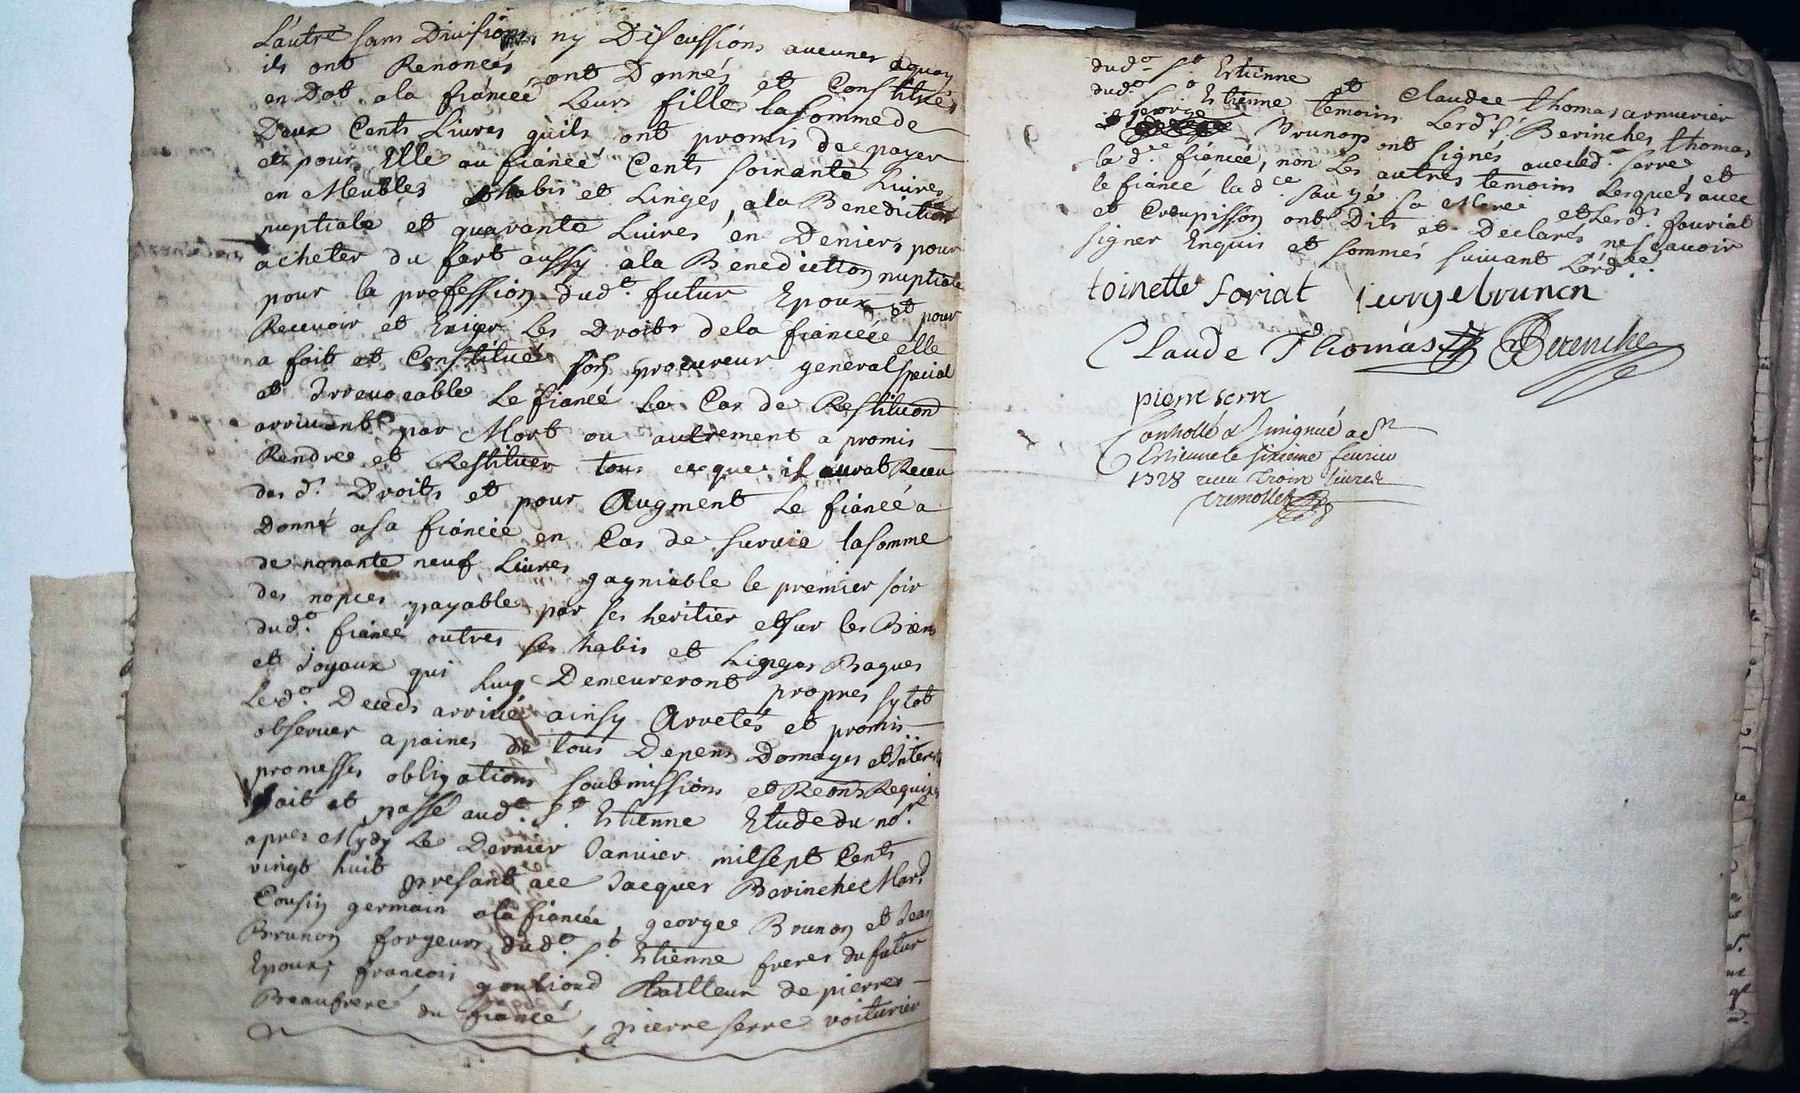 L'autre sans Division ny Discussions aucunes aquoy
ils ont Renoncés ont Donnés et Constitués
en Dot ala fiancée Leurs fille la somme de
Deux Cents Livres quils ont promis de payer
et pour Elle au fiancé Cents soixante Livres
en Meubles habis et Linges, ala Benediction
nuptiale et quarante Livres en Deniers pour
acheter du fert aussy ala Benediction nuptiale
pour la profession dud.t futur Epoux et pour
Recevoir et Exiger Les Droits dela fiancée elle
a fait et Constitué son procureur general special
et Irrevocable Le fiancé Le Cas de Restituon
arrivant par Mort ou autrement a promis
Rendre et Restituer tous ce que il aurat Receu
des d.s Droits et pour Augment Le fiancé a
Donné asa fiancée en Cas de survie la somme
de nonante neuf Livres gagniable le premier soir
des nopces payable par ses heritier et sur les Biens
dud.t fiancé outres ses habis et Linges Bagues
et Joyaux qui Luy Demeureront propres sytot
Led.t Deceds arrivé ainsy Arretés et promis
observer apaines de tous Depens Domages et Interets
promesses obligations soubmissions et Reons Requises
fait et passé aud.t S.t Estienne Etude du no.re
apres Mydy Le Dernier Janvier milsept Cents
vingt huit presant ace Jacques Berinches Mard
Cousin germain ala fiancée, george Brunon et Jean
Brunon forgeurs dud.t S.t Estienne freres du futur
Epoux, francois goutioud tailleur de pierres
Beaufrere du fiancé, pierre serre voiturier
dud.t S.t Estienne et Claude thomas armurier
dud.t Estienne temoins Lesd.s s.r Berinches, thomas
et george Brunon ont signés avec led.t serre et
la d.e fiancée, non Les autres temoins Lesquels avec
le fiancé la d.ce sauzé sa Mere et Lesd.s fouriat
et Croupisson ont Dits et Declarés ne scavoir
signer Enquis et sommés suivant Lord.ce
toinette foriat george brunon
Claude Thomas Berenche
pierre serre
Controllé & Insignué a S.t
Estienne le sixieme fevrier
1728 receu Trois livres
Tremollet